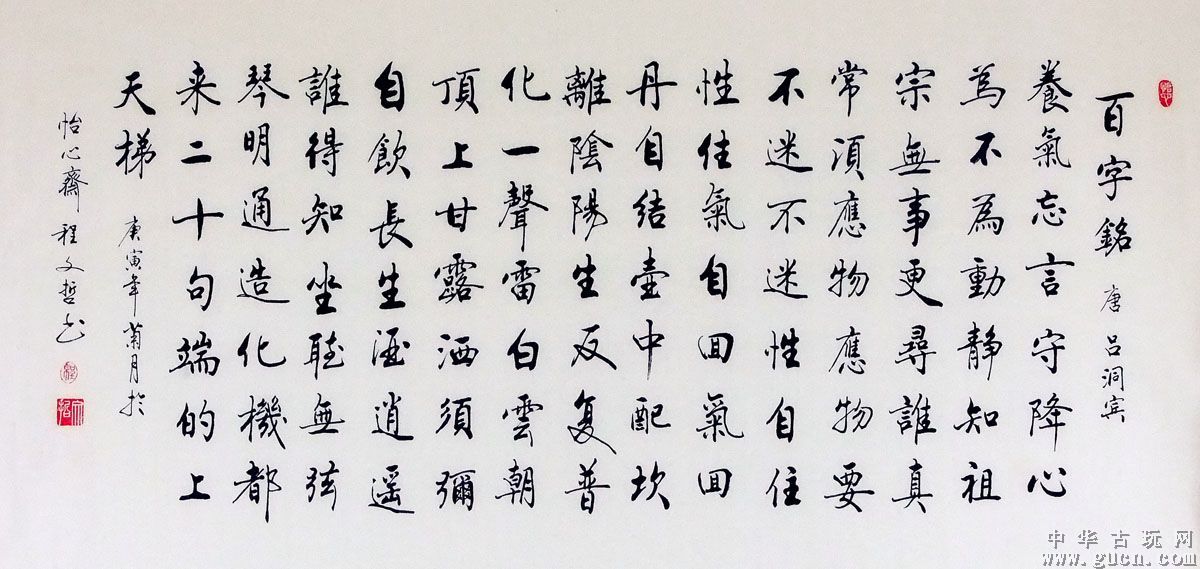 百字銘 唐 吕洞宾
養氣忘言守降心
爲不為動静知祖
宗無事更尋誰真
常湏應物應物要
不迷不迷性自住
性住氣自回氣回
丹自结壺中配坎
離陰陽生反复普
化一聲雷白雲朝
頂上甘露洒須彌
自飲長生酒逍遥
誰得知坐聼無弦
琴明通造化機都
来二十句端的上
天梯 庚寅年菊月於
怡心齋 程文哲书
中华古玩网
www.gucn.com